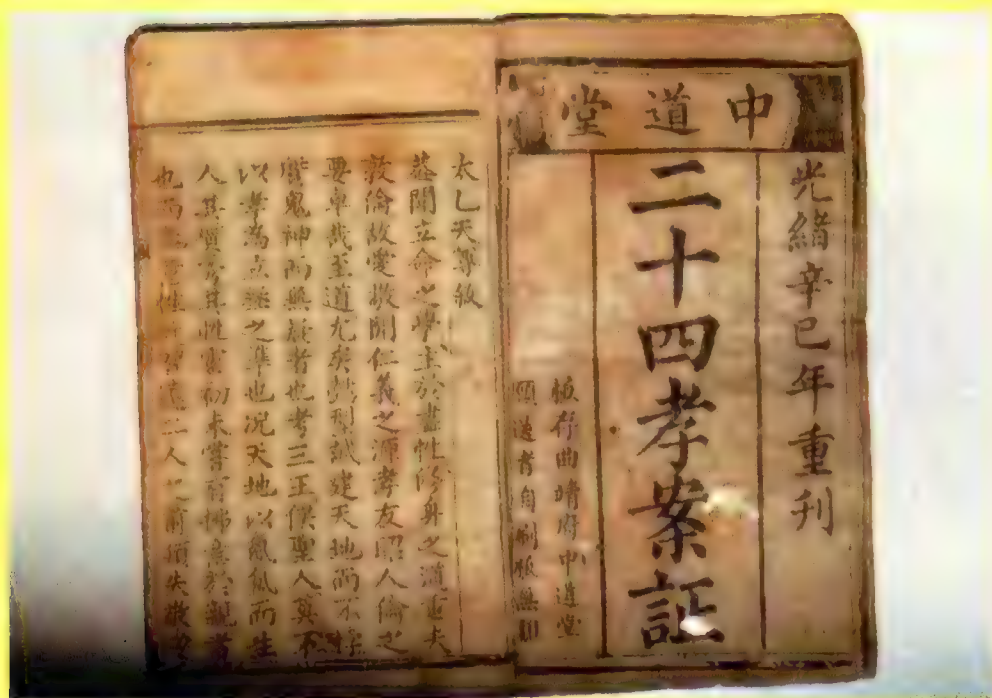 中道堂
光緒辛巳年重刊
二十四孝案証
板存曲靖府中道堂
願送者自刷板無
太乙天尊敘
蓋聞立命之學主於盡性修身之道重夫
敦倫故愛敬開仁義之源孝友昭人倫之
要卓哉至道尤矣誠建天地而不悖
鬼神而無疑者也考三王俟聖人莫不
以孝為立極之準也況天地以氤氳而生
人其實性初未嘗有拂意於親者
也而人之前須失敬